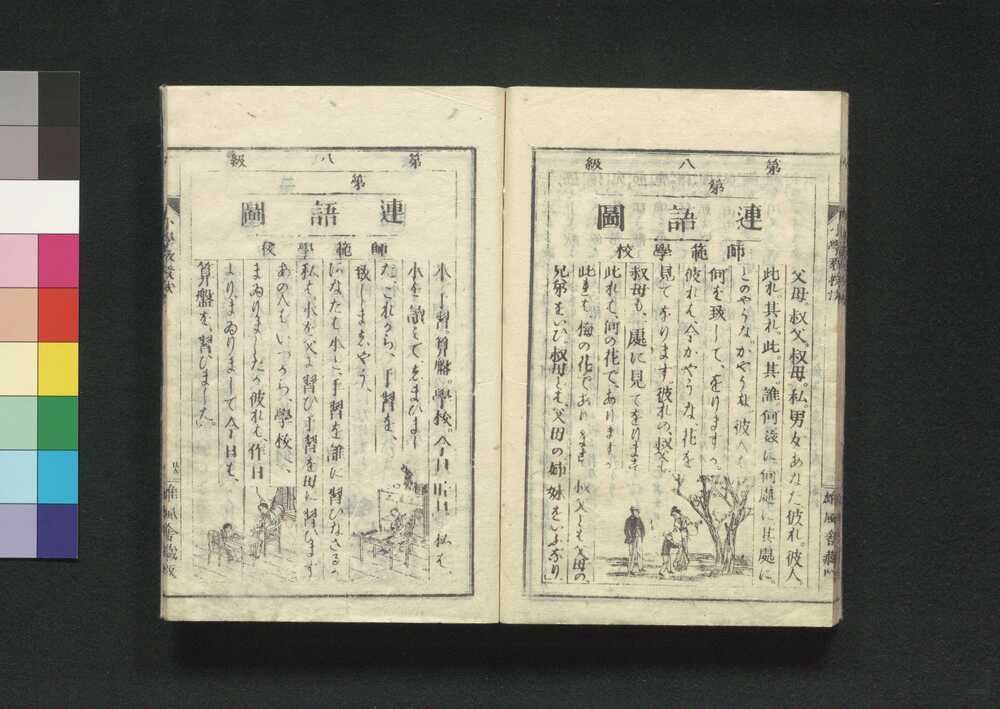 第八級
第
連語圖
師範學校
父母。叔父。叔母。私。男女あなた彼れ。彼人。
此れ。其れ。此。其。誰。何 茲に何處に其處に。
どのやうな。かやうな。彼人
何を致して、をりますか。
彼れは、今かやうな、花を
見て、をります 彼れの、叔父も
叔母も、處に見てをります
此れも、何の花で、ありますか
此れも、梅の花であります 叔父とも父母の、
兄弟をいひ、叔母とも、父母の姉妹をいふなり、
第八級
第
連語圖
師範學校
小 手習。算盤。學校。今日 昨日 私も、
小を讀で、しまひまし
た、これから、手習を、
致しましやう、
あなたも小と、手習を誰に習ひなさるか
私も、小が父に習ひ手習を母に習ひます
あの人も いつから、學校へ、
まゐりましたか 彼れも、昨日
よりまゐりまして今日も、
算盤を、習ひました、